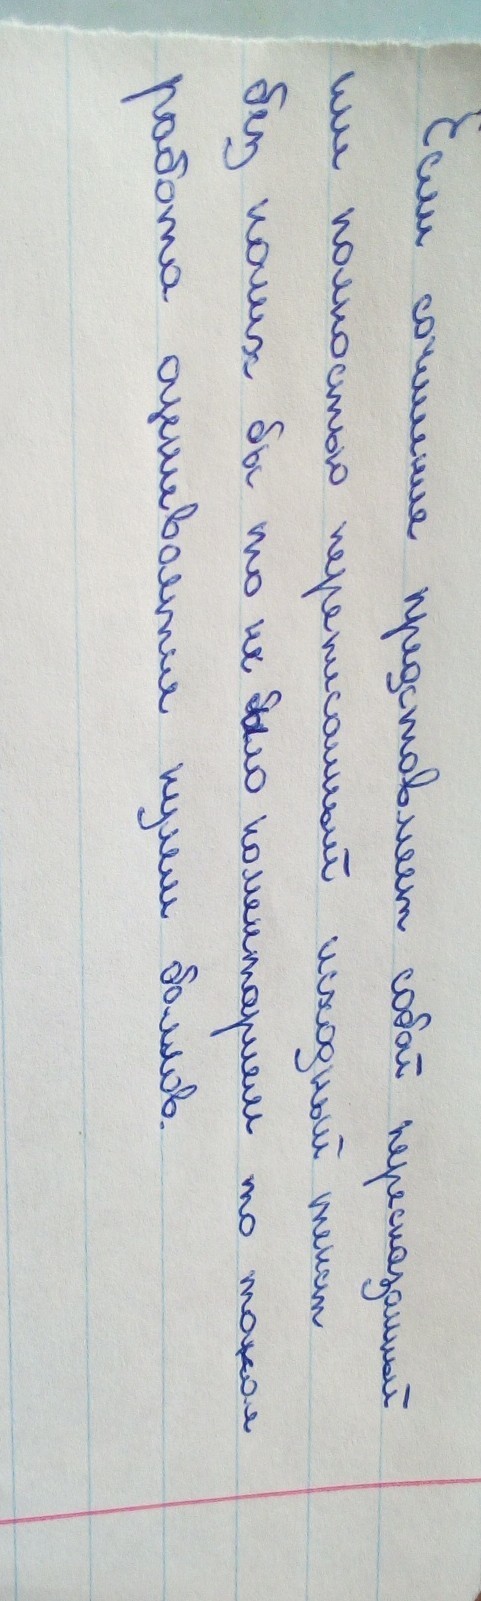 Если сочинение представляет собой пересказанный
или полностью переписанный исходный текст
без каких бы то не было коментариев то такая
работа оценивается нулем баллов.